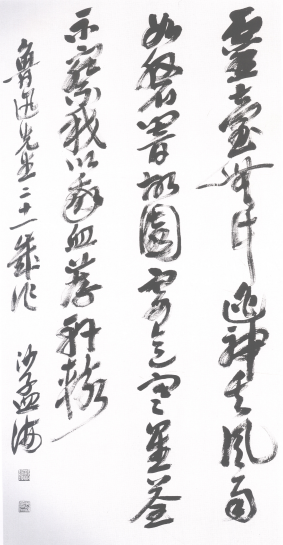 靈臺無計逃神矢風雨
如磐闇故園寄意寒星荃
不察我以我血薦軒轅
魯迅先生二十一歲作 沙孟海